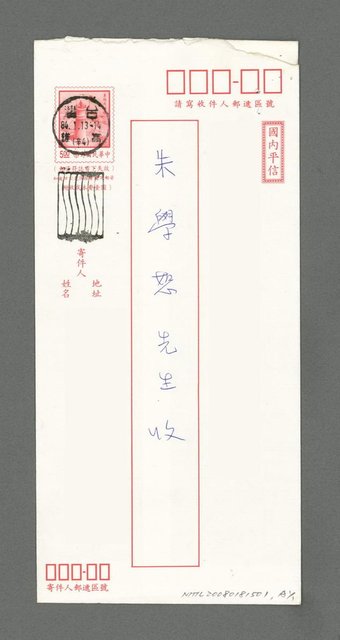 請寫收件人郵遞區號
國內平信
朱學恕先生收
84.1.13-14
中華民國郵票
500
寄件人
地址
姓名
寄件人郵遞區號
NMTL20080181501